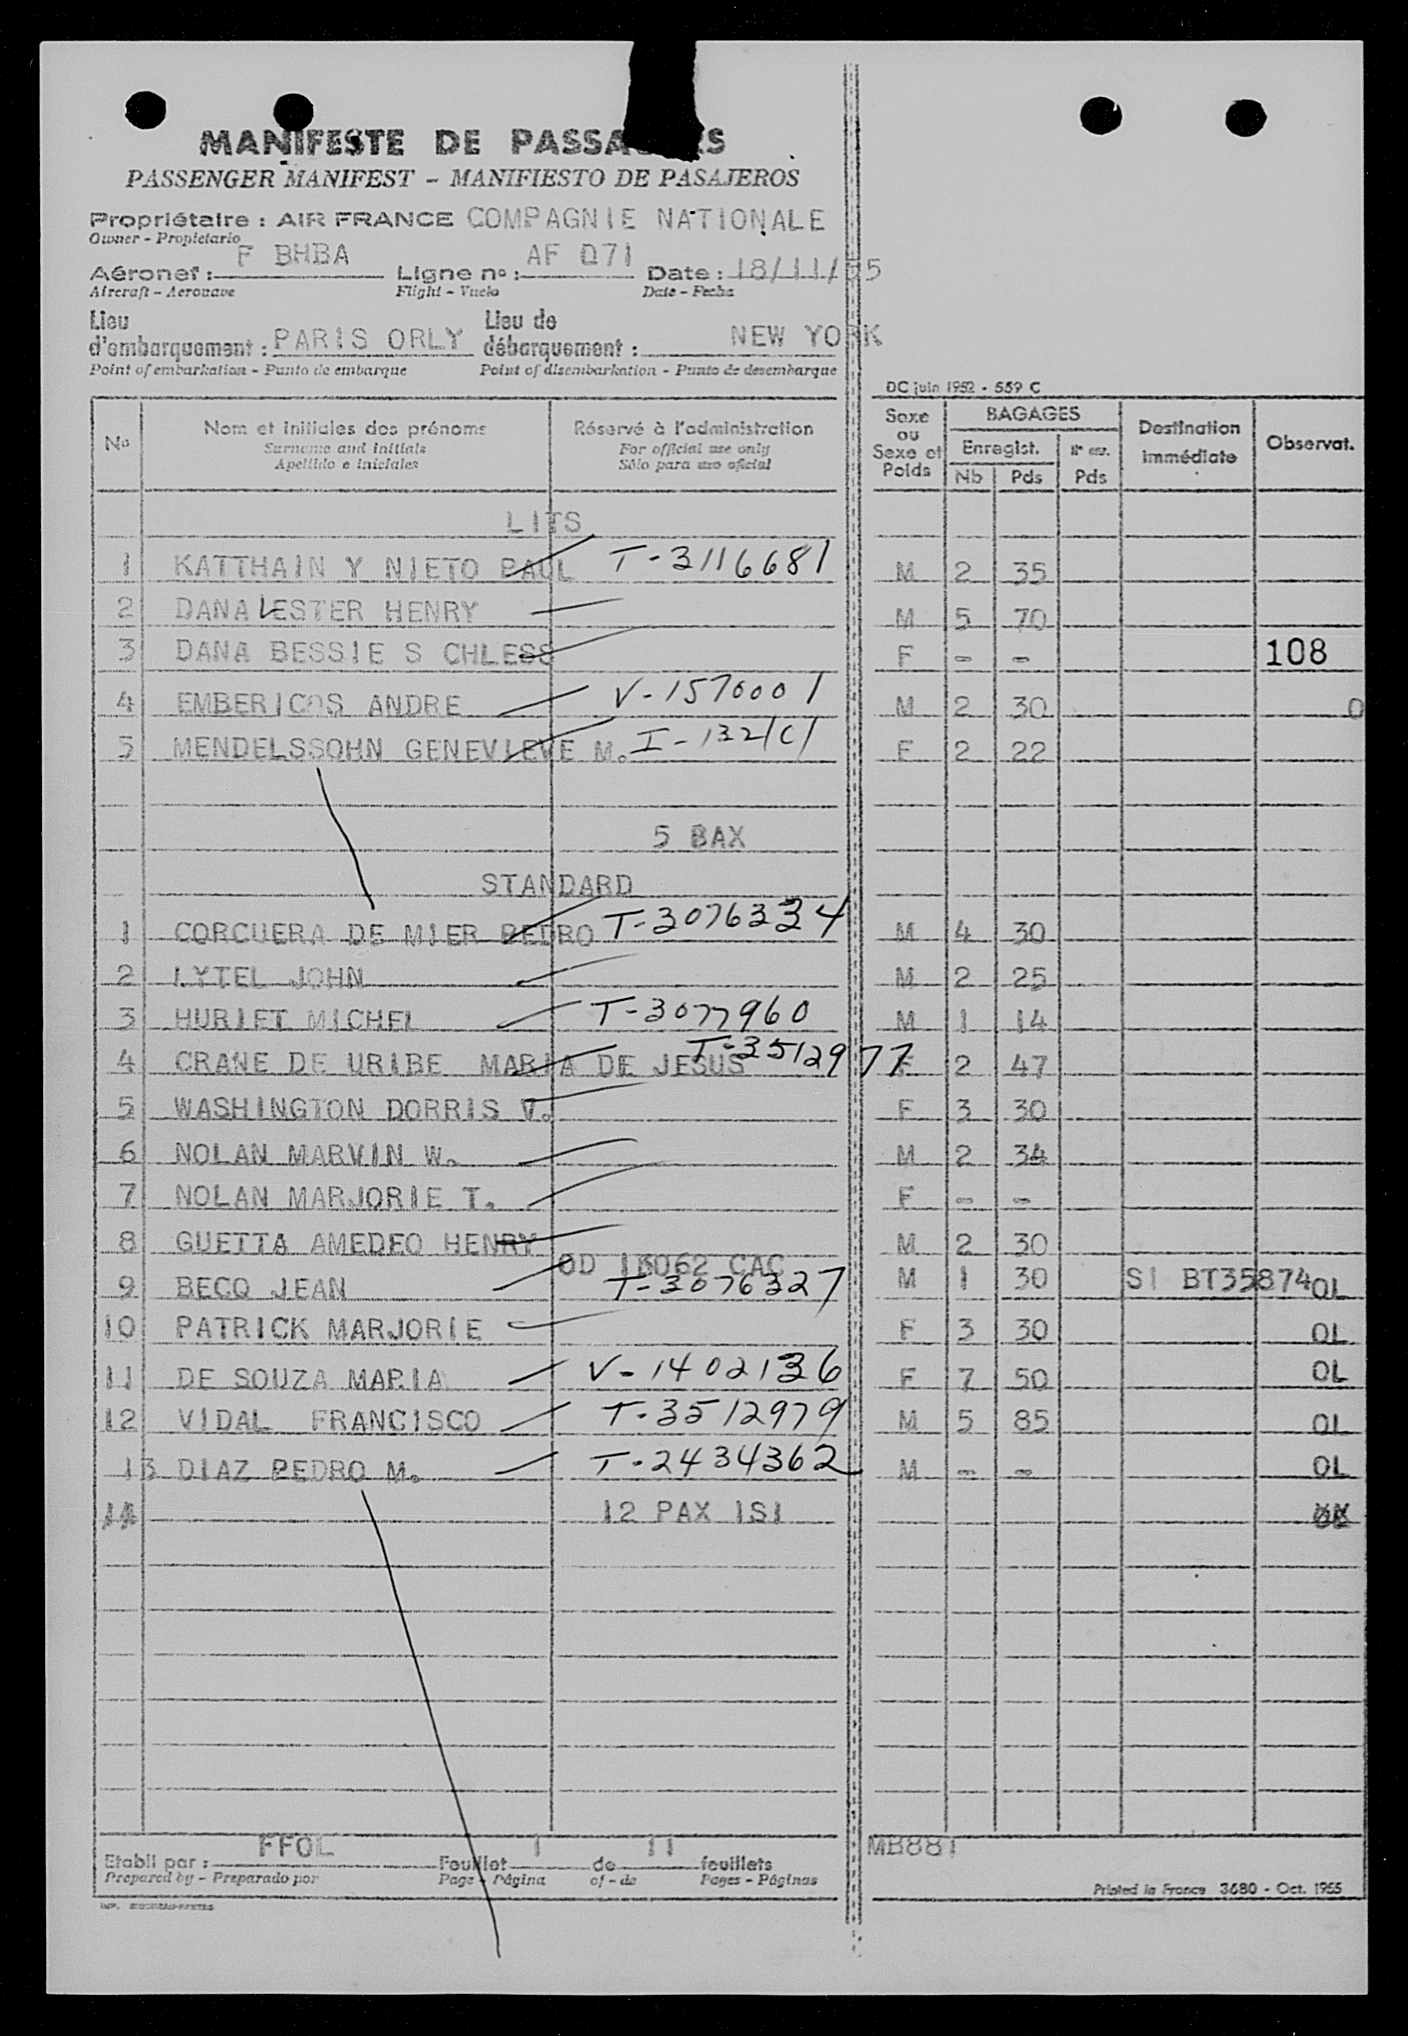 MANIFESTE DE PASSAGERS
PASSENGER MANIFEST - MANIFIESTO DE PASAJEROS
Propriétaire : AIR FRANCE COMPAGNIE NATIONALE
Owner - Propietario
F BHBA AF 071 18/11/55
Aéronef : Ligne nº : Date :
Aircraft - Aeronave Flight - Vuelo Date - Fecha
Lieu d'embarquement : PARIS ORLY Lieu de débarquement : NEW YORK
Point of embarkation - Punto de embarque Point of disembarkation - Punto de desembarque
DC juin 1952 - 559 C
Nº Nom et initiales des prénoms Réservé à l'administration Sexe ou Sexe et Poids BAGAGES Destination immédiate Observat.
Surname and initials For official use only Enregist.
Apellido e iniciales Sólo para uso oficial Nb Pds Pds
LITS
1 KATTHAIN Y NIETO PAUL T-3116681 M 2 35
2 DANA LESTER HENRY M 5 70
3 DANA BESSIE S CHLESS F - - 108
4 EMBERICOS ANDRE V-1570001 M 2 30 O
5 MENDELSSOHN GENEVIEVE M. I-132/C/ F 2 22
5 BAX
STANDARD
1 CORCUERA DE MIER PEDRO T-3076334 M 4 30
2 LYTEL JOHN M 2 25
3 HURIET MICHEL T-3077960 M 1 14
4 CRANE DE URIBE MARIA DE JESUS T-3512977 F 2 47
5 WASHINGTON DORRIS V. F 3 30
6 NOLAN MARVIN W. M 2 34
7 NOLAN MARJORIE T. F - -
8 GUETTA AMEDEO HENRY M 2 30
OD 13062 CAC
9 BECQ JEAN T-3076327 M 1 30 SI BT35874 OL
10 PATRICK MARJORIE F 3 30 OL
11 DE SOUZA MARIA V-1402136 F 7 50 OL
12 VIDAL FRANCISCO T-3512979 M 5 85 OL
13 DIAZ PEDRO M. T-2434362 M - - OL
14 12 PAX 1SI
FFOL 1 11 MB881
Etabli par : Feuillet de feuillets
Prepared by - Preparado por Page - Página of - de Pages - Páginas
Printed in France 3680 - Oct. 1955